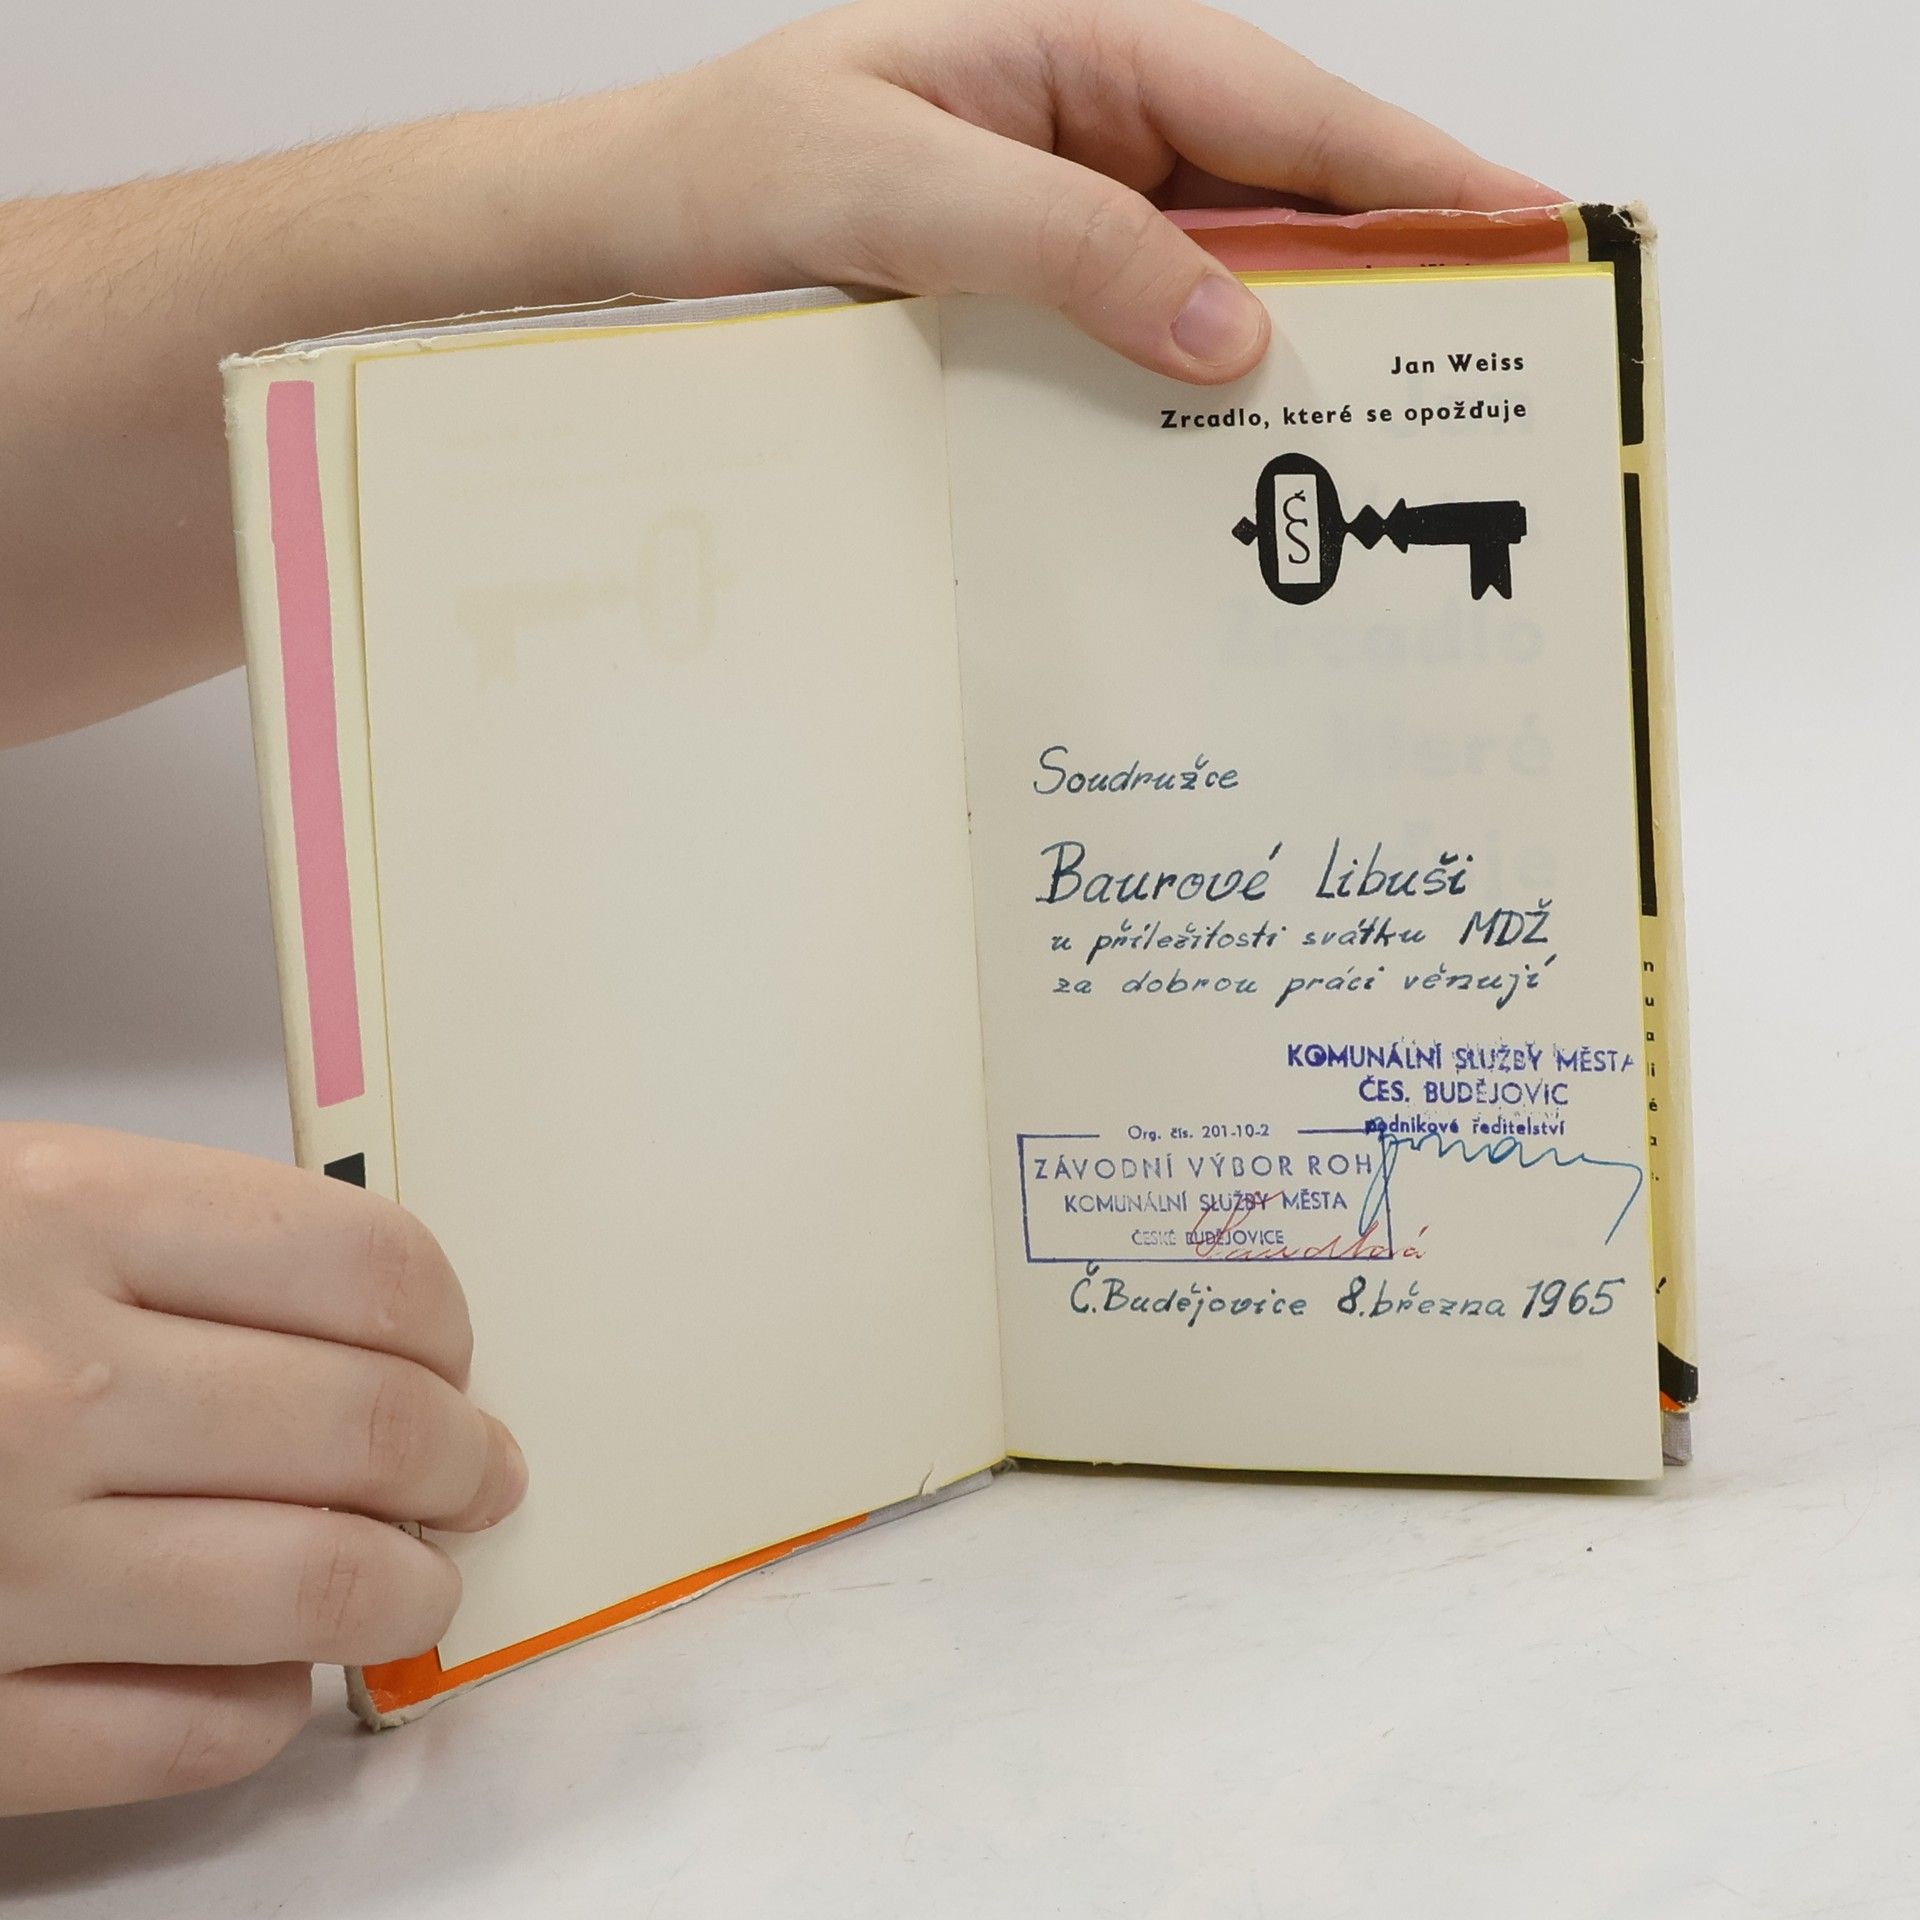 Jan Weiss
Zrcadlo, které se opožďuje
ČS
Soudružce
Baurové Libuši
u příležitosti svátku MDŽ
za dobrou práci věnují
KOMUNÁLNÍ SLUŽBY MĚSTA
ČES. BUDĚJOVIC
podnikové ředitelství
Org. čís. 201-10-2
ZÁVODNÍ VÝBOR ROH
KOMUNÁLNÍ SLUŽBY MĚSTA
ČESKÉ BUDĚJOVICE
Č. Budějovice 8. března 1965